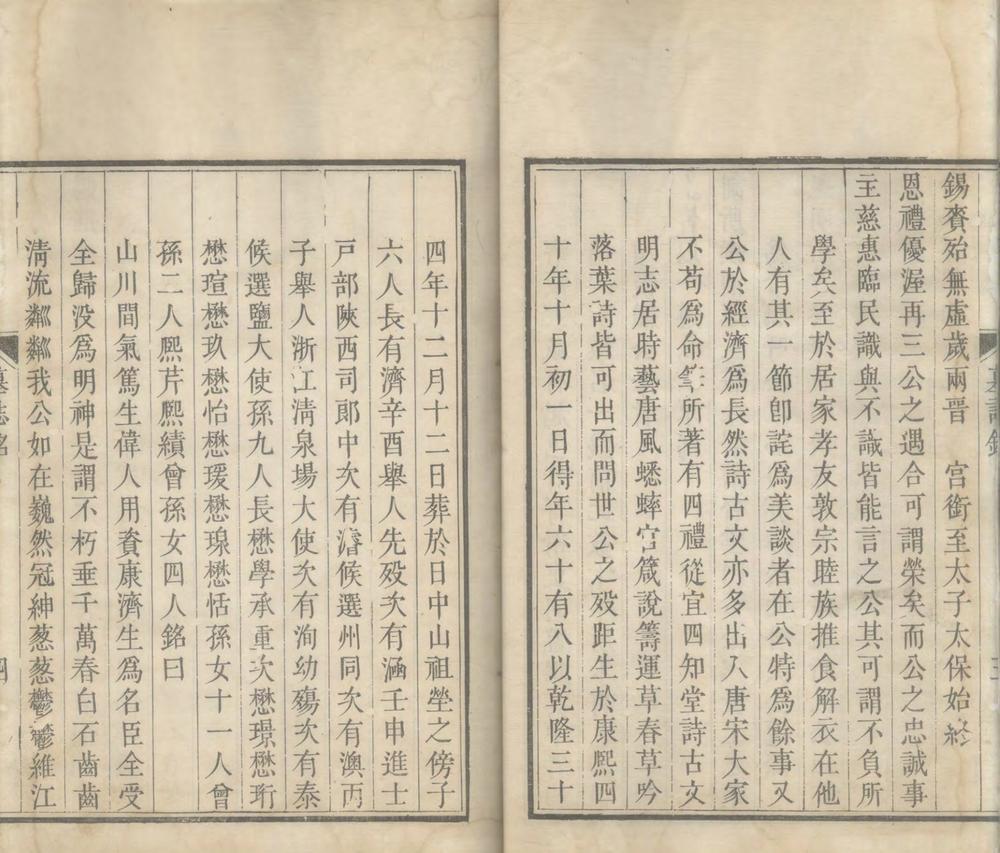 錫賚殆無虛歲兩晉　宮銜至太子太保始終
恩禮優渥再三公之遇合可謂榮矣而公之忠誠事
主慈惠臨民識與不識皆能言之公其可謂不負所
學矣至於居家孝友敦宗睦族推食解衣在他
人有其一節卽詫爲美談者在公特爲餘事又
公於經濟爲長然詩古文亦多出入唐宋大家
不苟爲命筆所著有四禮從宜四知堂詩古文
明志居時藝唐風蟋蟀宮箴說籌運草春草吟
落葉詩皆可出而問世公之殁距生於康熙四
十年十月初一日得年六十有八以乾隆三十
四年十二月十二日葬於日中山祖塋之傍子
六人長有濟辛酉舉人先殁次有涵壬申進士
戸部陝西司郎中次有濬候選州同次有澳丙
子舉人浙江淸泉場大使次有洵幼殤次有泰
候選鹽大使孫九人長懋學承重次懋璟懋珩
懋瑄懋玖懋怡懋瑗懋琅懋恬孫女十一人曾
孫二人熙芹熙績曾孫女四人銘曰
山川間氣篤生偉人用賚康濟生爲名臣全受
全歸没爲明神是謂不朽垂千萬春白石齒齒
淸流粼粼我公如在巍然冠紳葱葱鬱鬱維江
墓誌銘
四